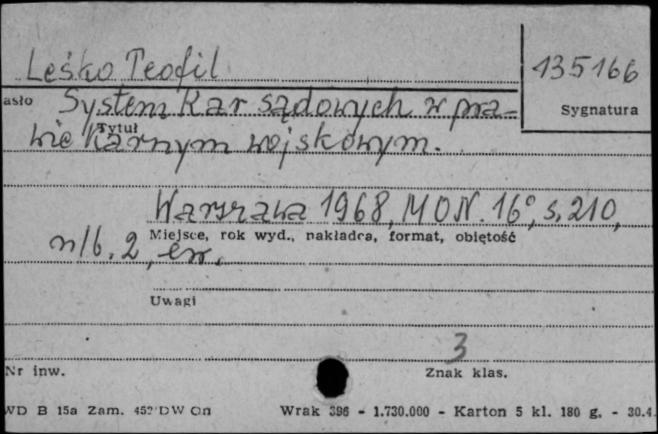 Leśko Teofil
135166
asło System kar sądowych w pra-
Sygnatura
Tytuł
wie karnym wojskowym.
Warszawa 1968, MON. 16°, s. 210,
Miejsce, rok wyd., nakładca, format, objętość
nlb. 2, err.
Uwagi
3
Nr inw.
Znak klas.
WD B 15a Zam. 452 DW On Wrak 396 - 1.730.000 - Karton 5 kl. 180 g. - 30.4.